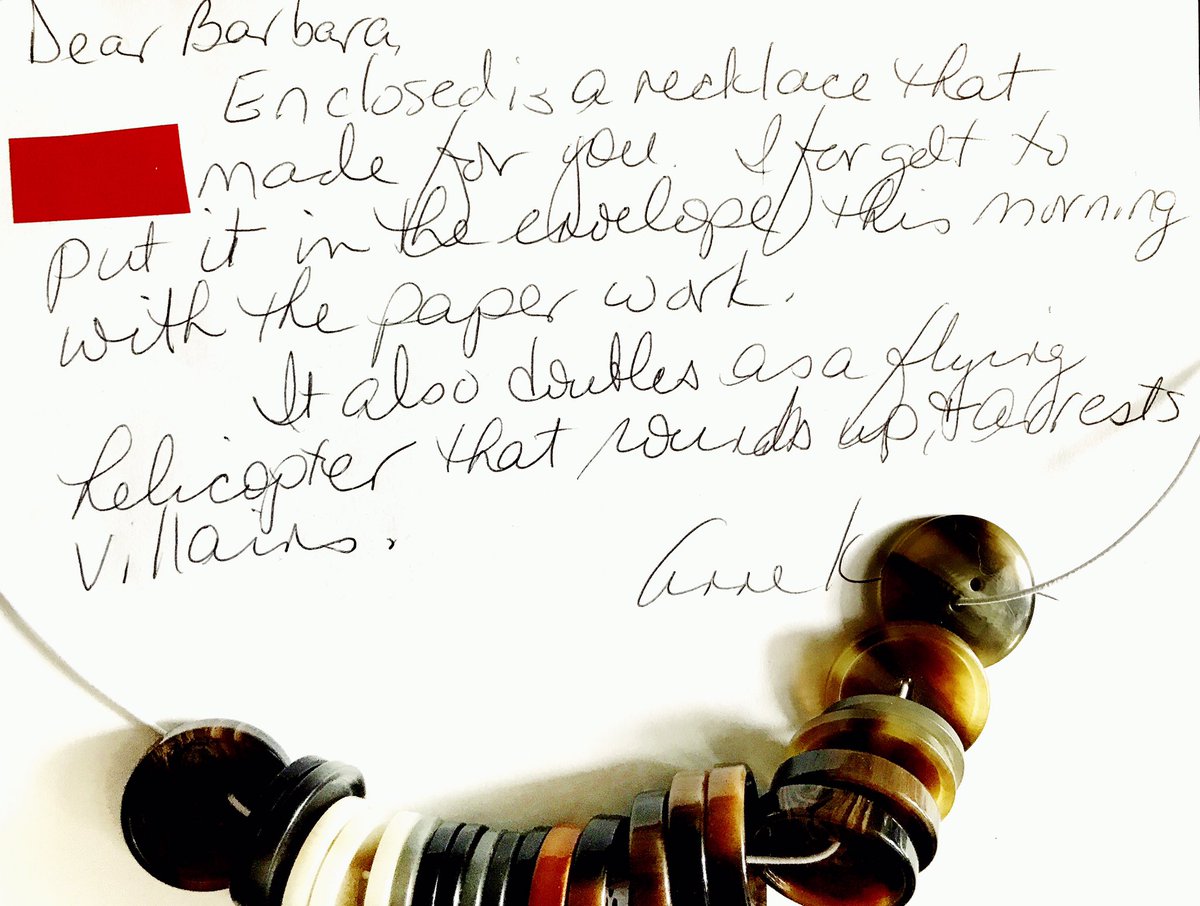 Dear Barbara,
Enclosed is a necklace that
made for you. I forgot to
put it in the envelope this morning
with the paper work.
It also doubles as a flying
helicopter that rounds up, & arrests
villains.
Anne K